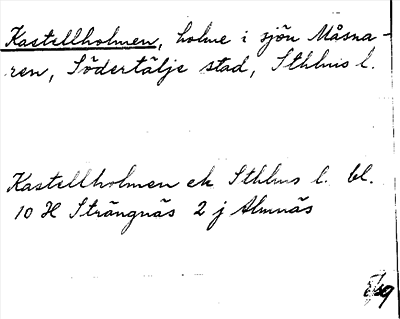 Kastellholmen, holme i sjön Måsna-
ren, Södertälje stad, Sthlms l.
Kastellholmen ek Sthlms l. bl.
10 H Strängnäs 2 j Almnäs